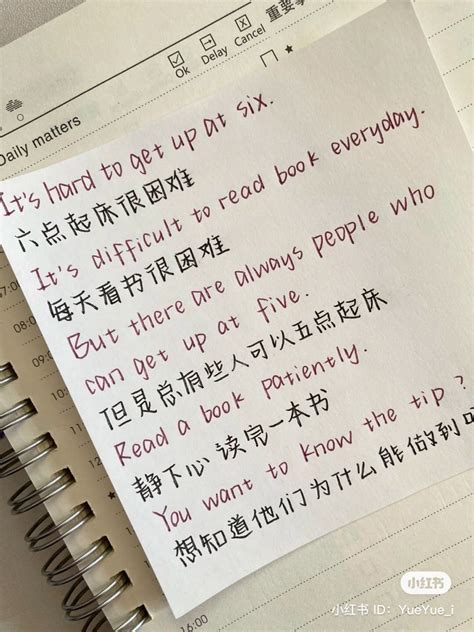 重要事
Ok
Delay
Cancel
Daily matters
It's hard to get up at six.
六点起床很困难
It's difficult to read book everyday.
每天看书很困难
But there are always people who
can get up at five.
但是总有些人可以五点起床
Read a book patiently.
静下心读完一本书
You want to know the tip?
想知道他们为什么能做到
08:00
09:00
10:00
11:00
小红书
小红书 ID: YueYue_i